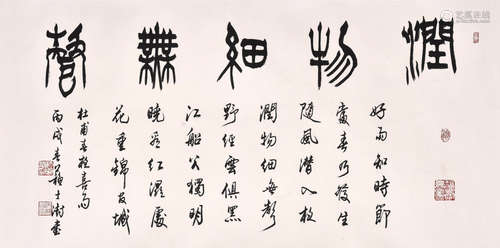 潤物細無聲
好雨知時節
當春乃發生
隨風潛入夜
潤物細無聲
野徑雲俱黑
江船火獨明
曉看紅濕處
花重錦官城
杜甫春夜喜雨
丙戌春蘇士澍書